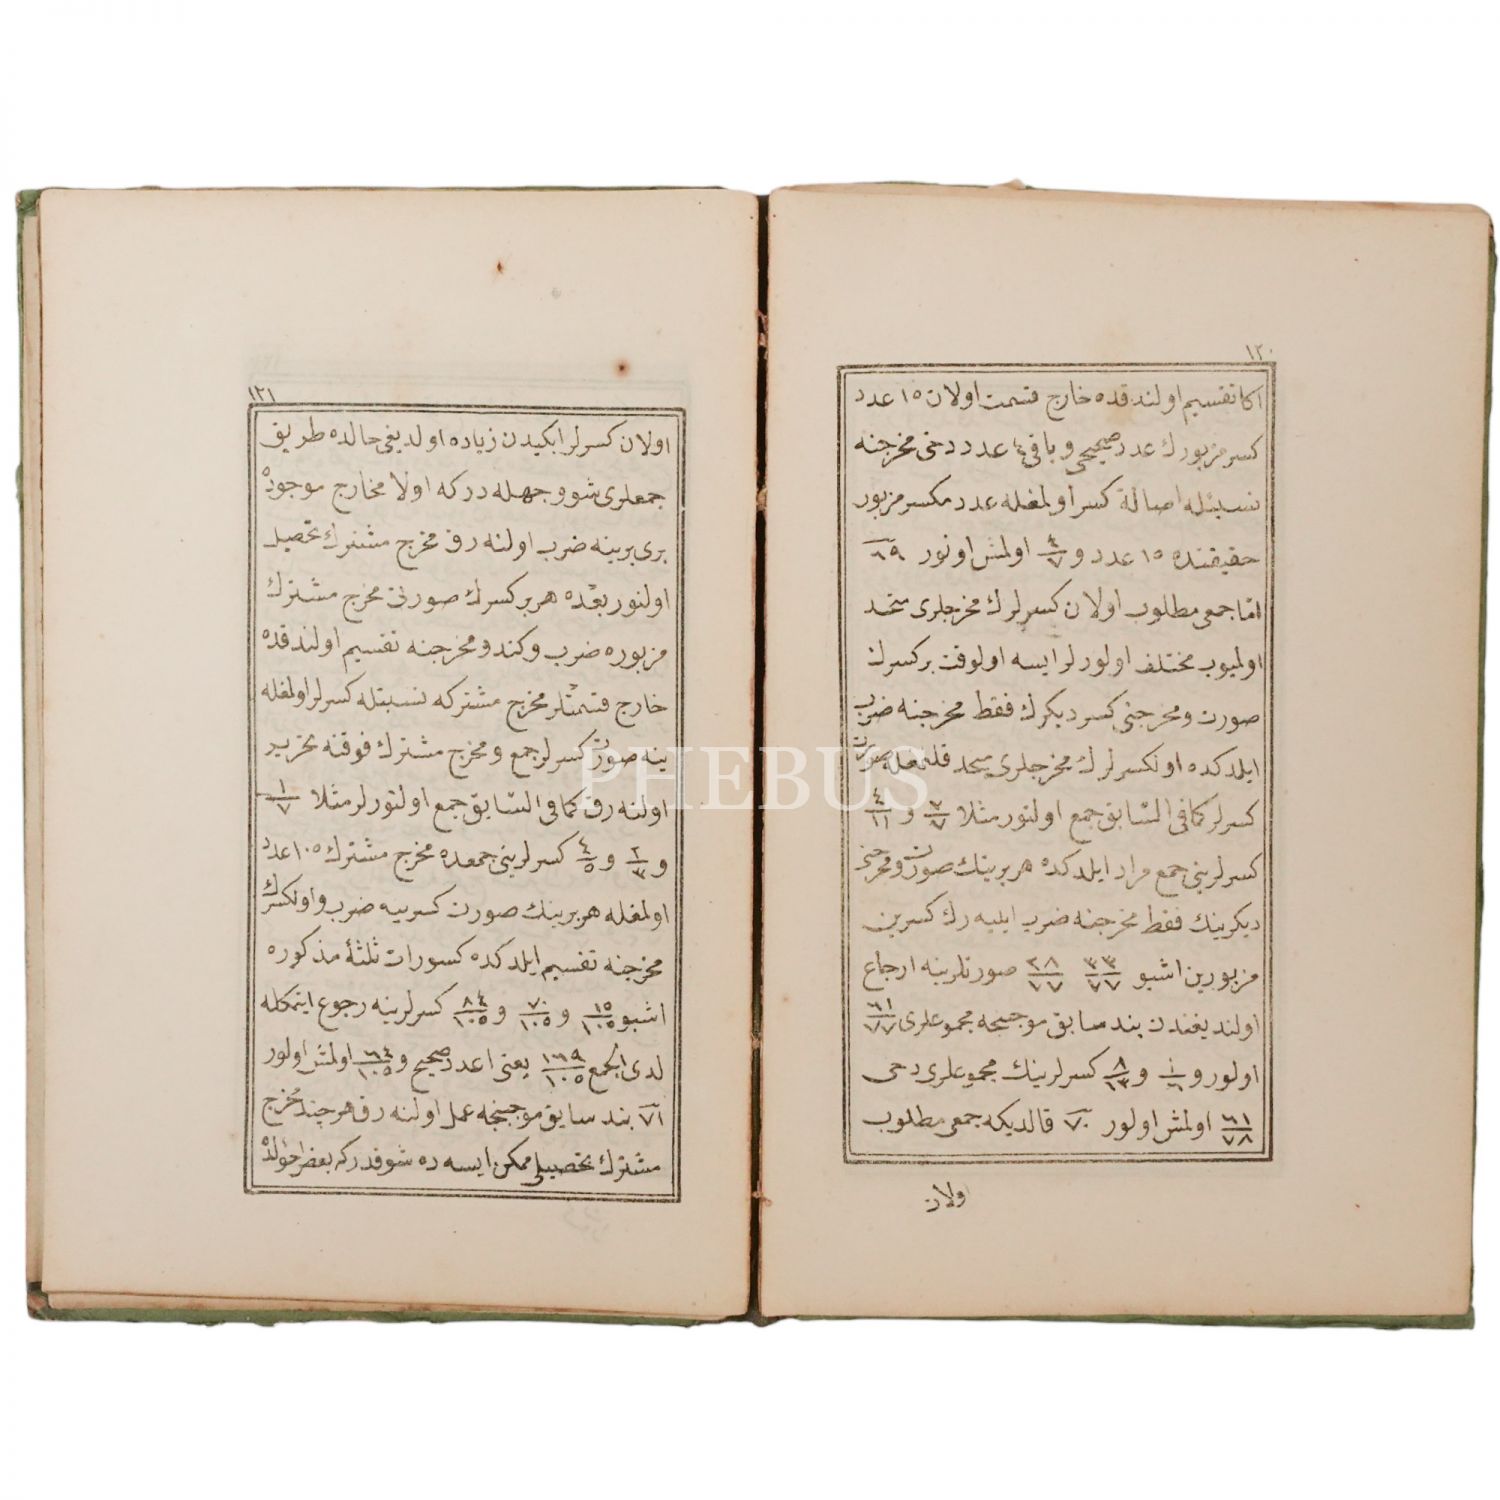 ١٢٠
اكا تقسيم اولندقده خارج قسمت اولان ١٥ عدد
كسر مزبورك عدد صحيحى و باقى ٤ عدد دخى مخرجنه
نسبتله اصالة كسر اولمغله عدد مكسر مزبور
حقيقتنده ١٥ عدد و ٤/٧ اولمش اولنور ٦٩
امّا جمعى مطلوب اولان كسرلرك مخرجلرى متحد
اولميوب مختلف اولورلر ايسه اولوقت بر كسرك
صورت و مخرجنى كسر ديكرك فقط مخرجنه ضرب
ايلدكده اول كسرلرك مخرجلرى متحد قلنمغله صورت
كسرلر كما فى السّابق جمع اولنور مثلا ٣/٧ و ٤/١١
كسرلرينى جمع مراد ايلدكده هر برينك صورت و مخرجنى
ديكرينك فقط مخرجنه ضرب ايليه رك كسرين
مزبورين اشبو ٣٣/٧٧ ٢٨/٧٧ صورتلرينه ارجاع
اولنديغندن بند سابق موجبنجه مجموعلرى ٦١/٧٧
اولور و ١/٦ و ٨/١٣ كسرلرينك مجموعلرى دخى
٦١/٧٨ اولمش اولور ٧٠ قالديكه جمعى مطلوب
اولان
١٢١
اولان كسرلر ايكيدن زياده اولديغى حالده طريق
جمعلرى شو وجهله در كه اولا مخارج موجوده
برى برينه ضرب اولنه رق مخرج مشترك تحصيل
اولنور بعده هر بر كسرك صورتى مخرج مشترك
مزبوره ضرب و كندو مخرجنه تقسيم اولندقده
خارج قسمتلر مخرج مشتركه نسبتله كسرلر اولمغله
ينه صورت كسرلر جمع و مخرج مشترك فوقنه تحرير
اولنه رق كما فى السّابق جمع اولنورلر مثلا ١/٧
و ٢/٣ و ٤/٥ كسرلرينى جمعده مخرج مشترك ١٠٥ عدد
اولمغله هر برينك صورت كسريه ضرب و اول كسرك
مخرجنه تقسيم ايلدكده كسورات ثلثۀ مذكوره
اشبو ١٥/١٠٥ و ٧٠/١٠٥ و ٨٤/١٠٥ كسرلرينه رجوع ايتمكله
لدى الجمع ١٦٩/١٠٥ يعنى ١ عدد صحيح و ٦٤/١٠٥ اولمش اولور
٧١ بند سابق موجبنجه عمل اولنه رق هر چند مخرج
مشترك تحصيلى ممكن ايسه ده شو قدر كه بعض احوالده
PHEBUS